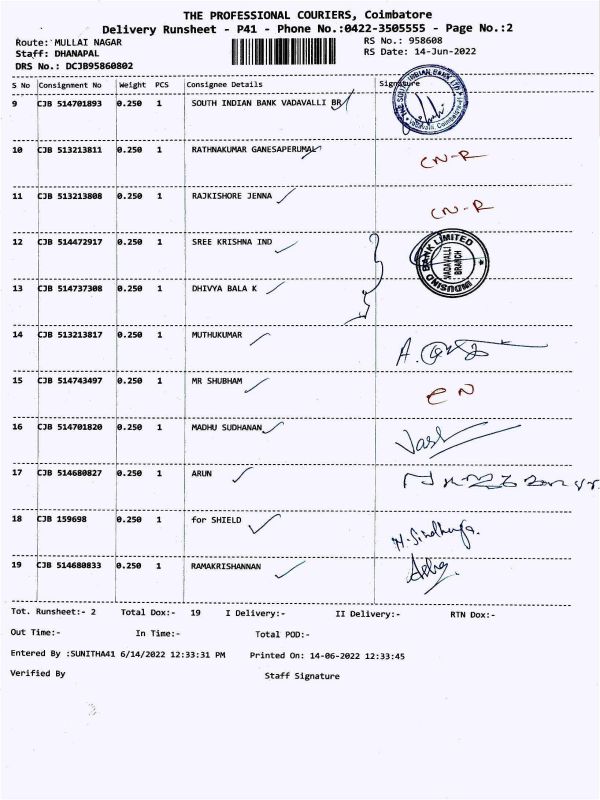 THE PROFESSIONAL COURIERS, Coimbatore
Delivery Runsheet - P41 - Phone No.:0422-3505555 - Page No.:2
Route: MULLAI NAGAR RS No.: 958608
Staff: DHANAPAL RS Date: 14-Jun-2022
DRS No.: DCJB95860802
S No Consignment No Weight PCS Consignee Details Signature
9 CJB 514701893 0.250 1 SOUTH INDIAN BANK VADAVALLI BR
10 CJB 513213811 0.250 1 RATHNAKUMAR GANESAPERUMAL CN-R
11 CJB 513213808 0.250 1 RAJKISHORE JENNA CN-R
12 CJB 514472917 0.250 1 SREE KRISHNA IND
INDUSIND BANK LIMITED
VADAVALLI
BRANCH
13 CJB 514737308 0.250 1 DHIVYA BALA K
14 CJB 513213817 0.250 1 MUTHUKUMAR
15 CJB 514743497 0.250 1 MR SHUBHAM CN
16 CJB 514701820 0.250 1 MADHU SUDHANAN
17 CJB 514680827 0.250 1 ARUN
18 CJB 159698 0.250 1 for SHIELD
19 CJB 514680833 0.250 1 RAMAKRISHANNAN
Tot. Runsheet:- 2 Total Dox:- 19 I Delivery:- II Delivery:- RTN Dox:-
Out Time:- In Time:- Total POD:-
Entered By :SUNITHA41 6/14/2022 12:33:31 PM Printed On: 14-06-2022 12:33:45
Verified By Staff Signature